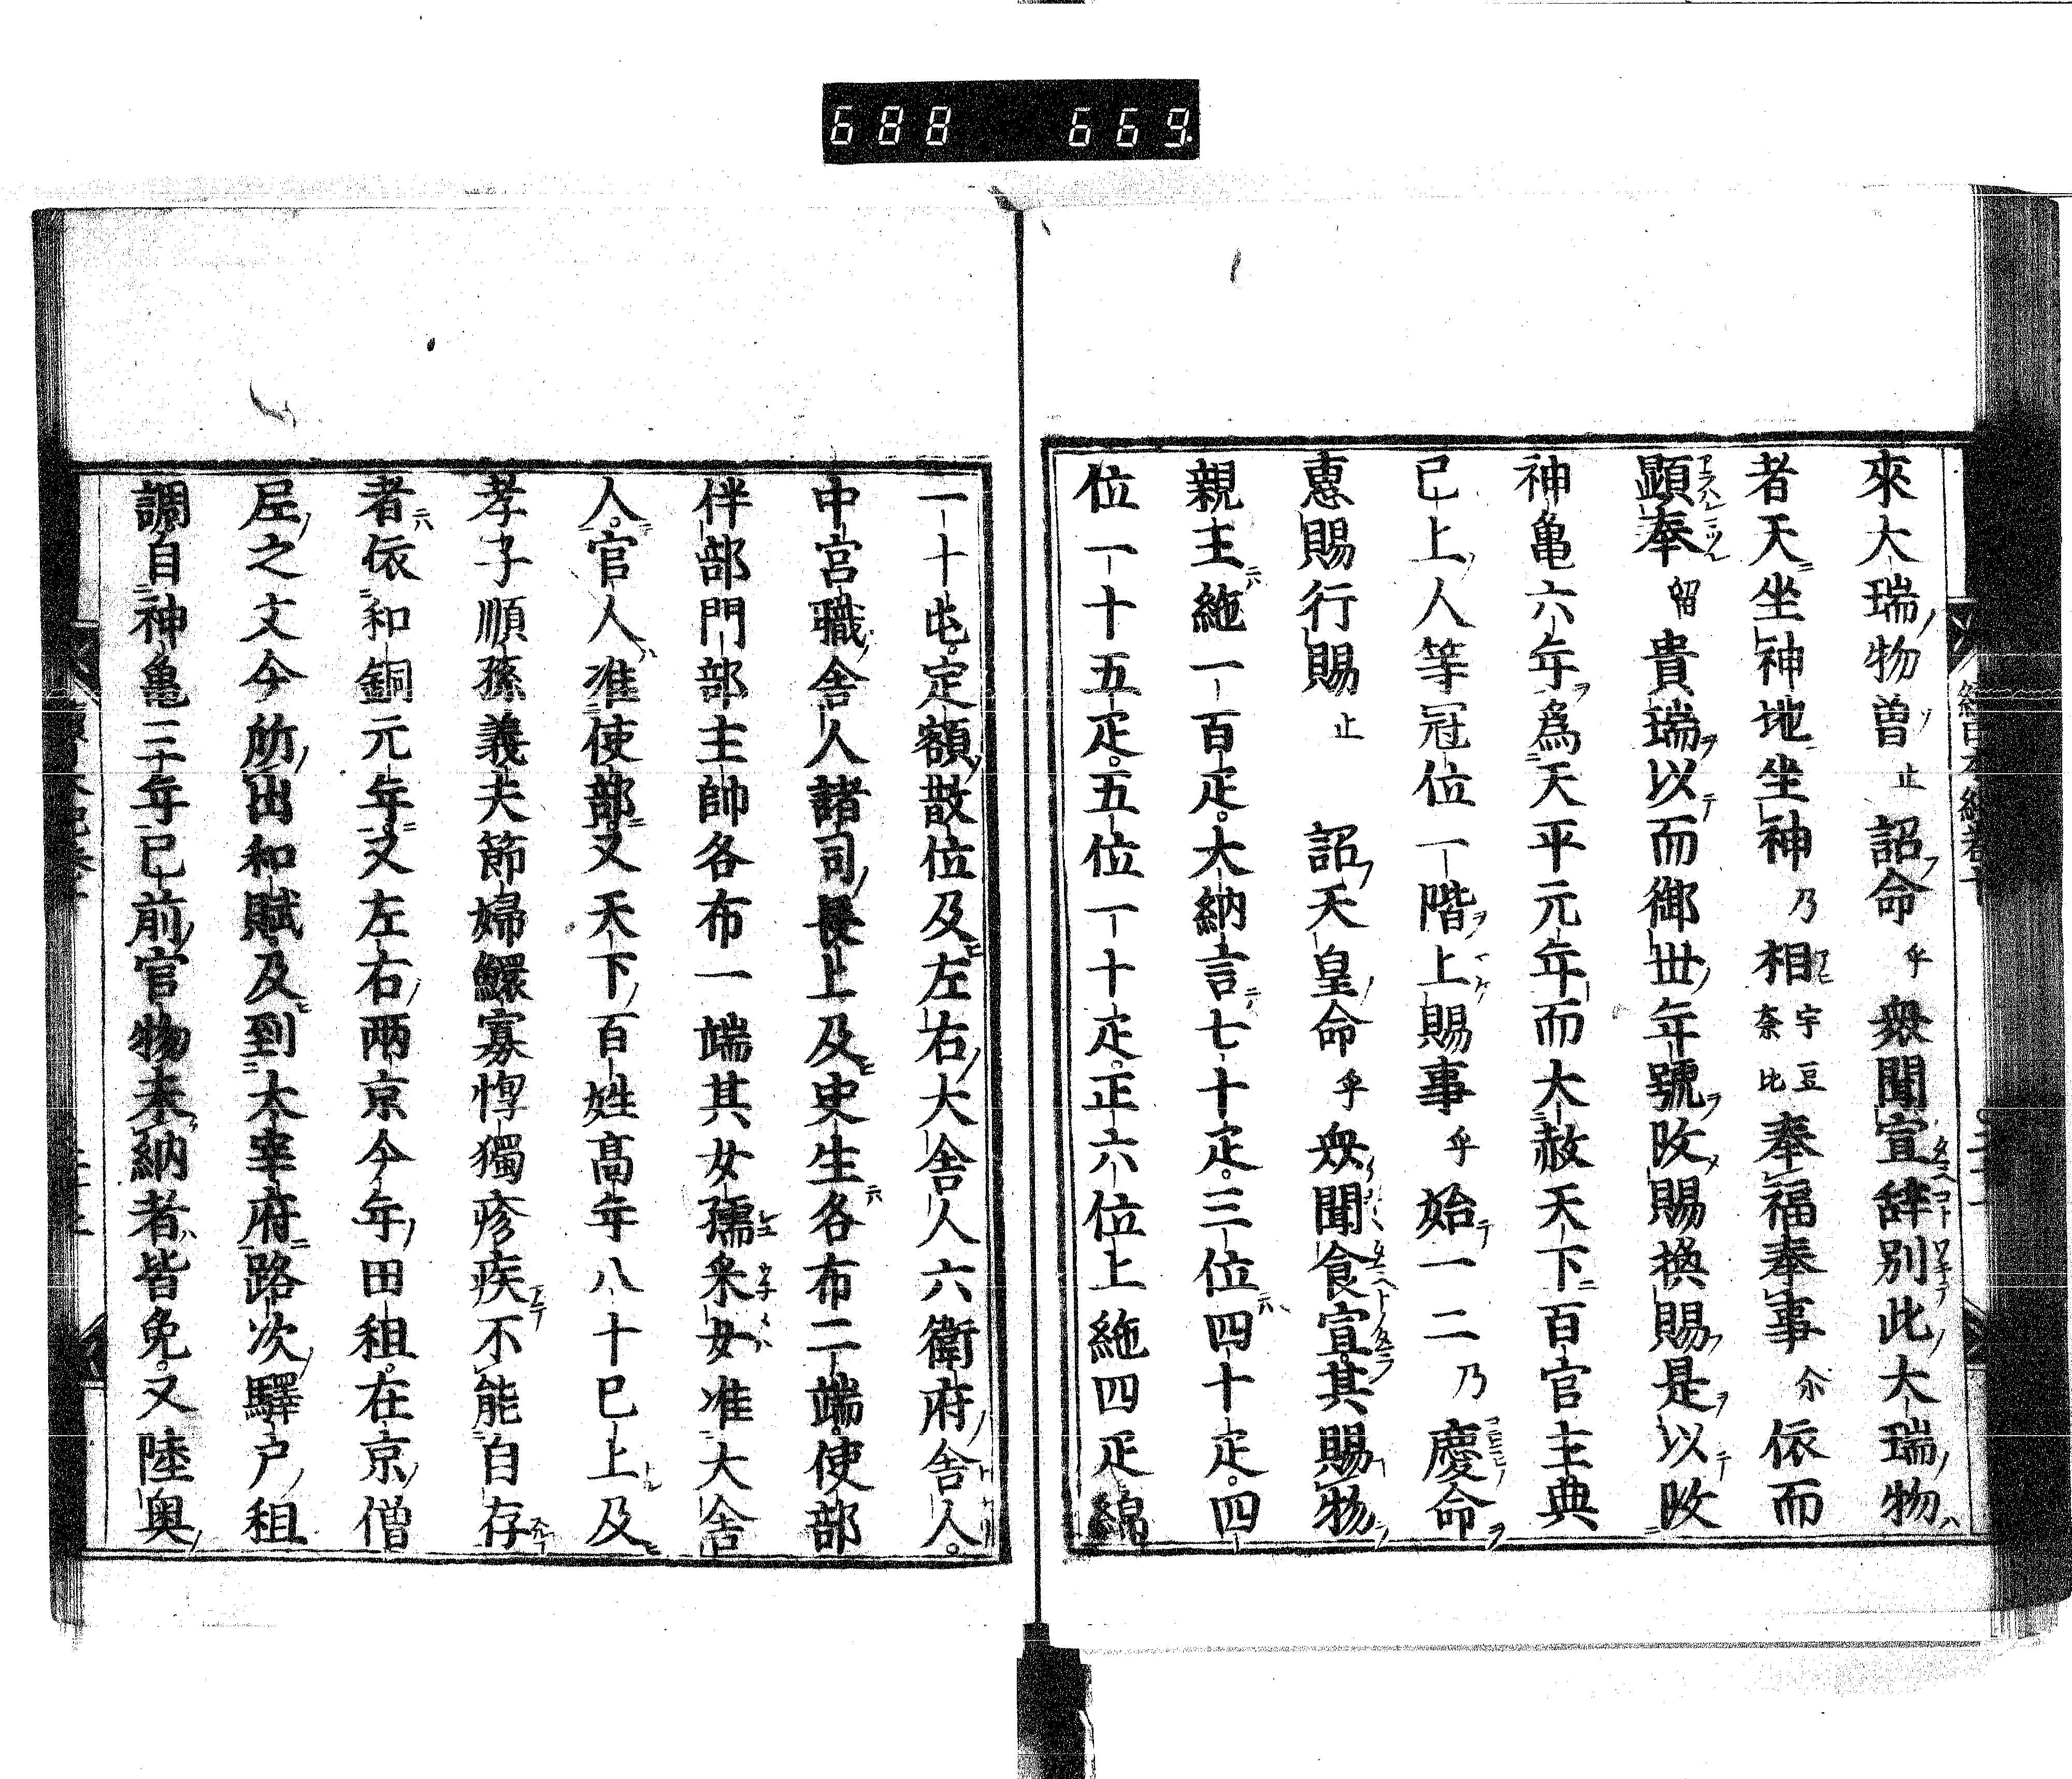 688 669
來大瑞物曽止詔命乎衆聞宣辞別此大瑞物
者天坐神地坐神乃相宇豆奈比奉福奉事尒依而
顕奉留貴瑞以而御世年號改賜換賜是以改
神亀六年為天平元年而大赦天下百官主典
已上人等冠位一階上賜事乎始一二乃慶命
恵賜行賜止詔天皇命乎衆聞食宣其賜物
親王絁一百疋。大納言七十疋。三位四十疋。四
位一十五疋。五位一十疋。正六位上絁四疋綿
一十屯。定額散位及左右大舎人六衛府舎人。
中宮職舎人諸司長上及史生各布二端使部
伴部門部主帥各布一端其女孺釆女准大舎
人。官人准使部。又天下百姓高年八十已上及
孝子順孫義夫節婦鰥寡惸獨疹疾不能自存
者依和銅元年。又左右両京今年田租。在京僧
尼之文今所出和賦及到太宰府路次驛戸租
調自神亀三年已前官物未納者皆免。又陸奥